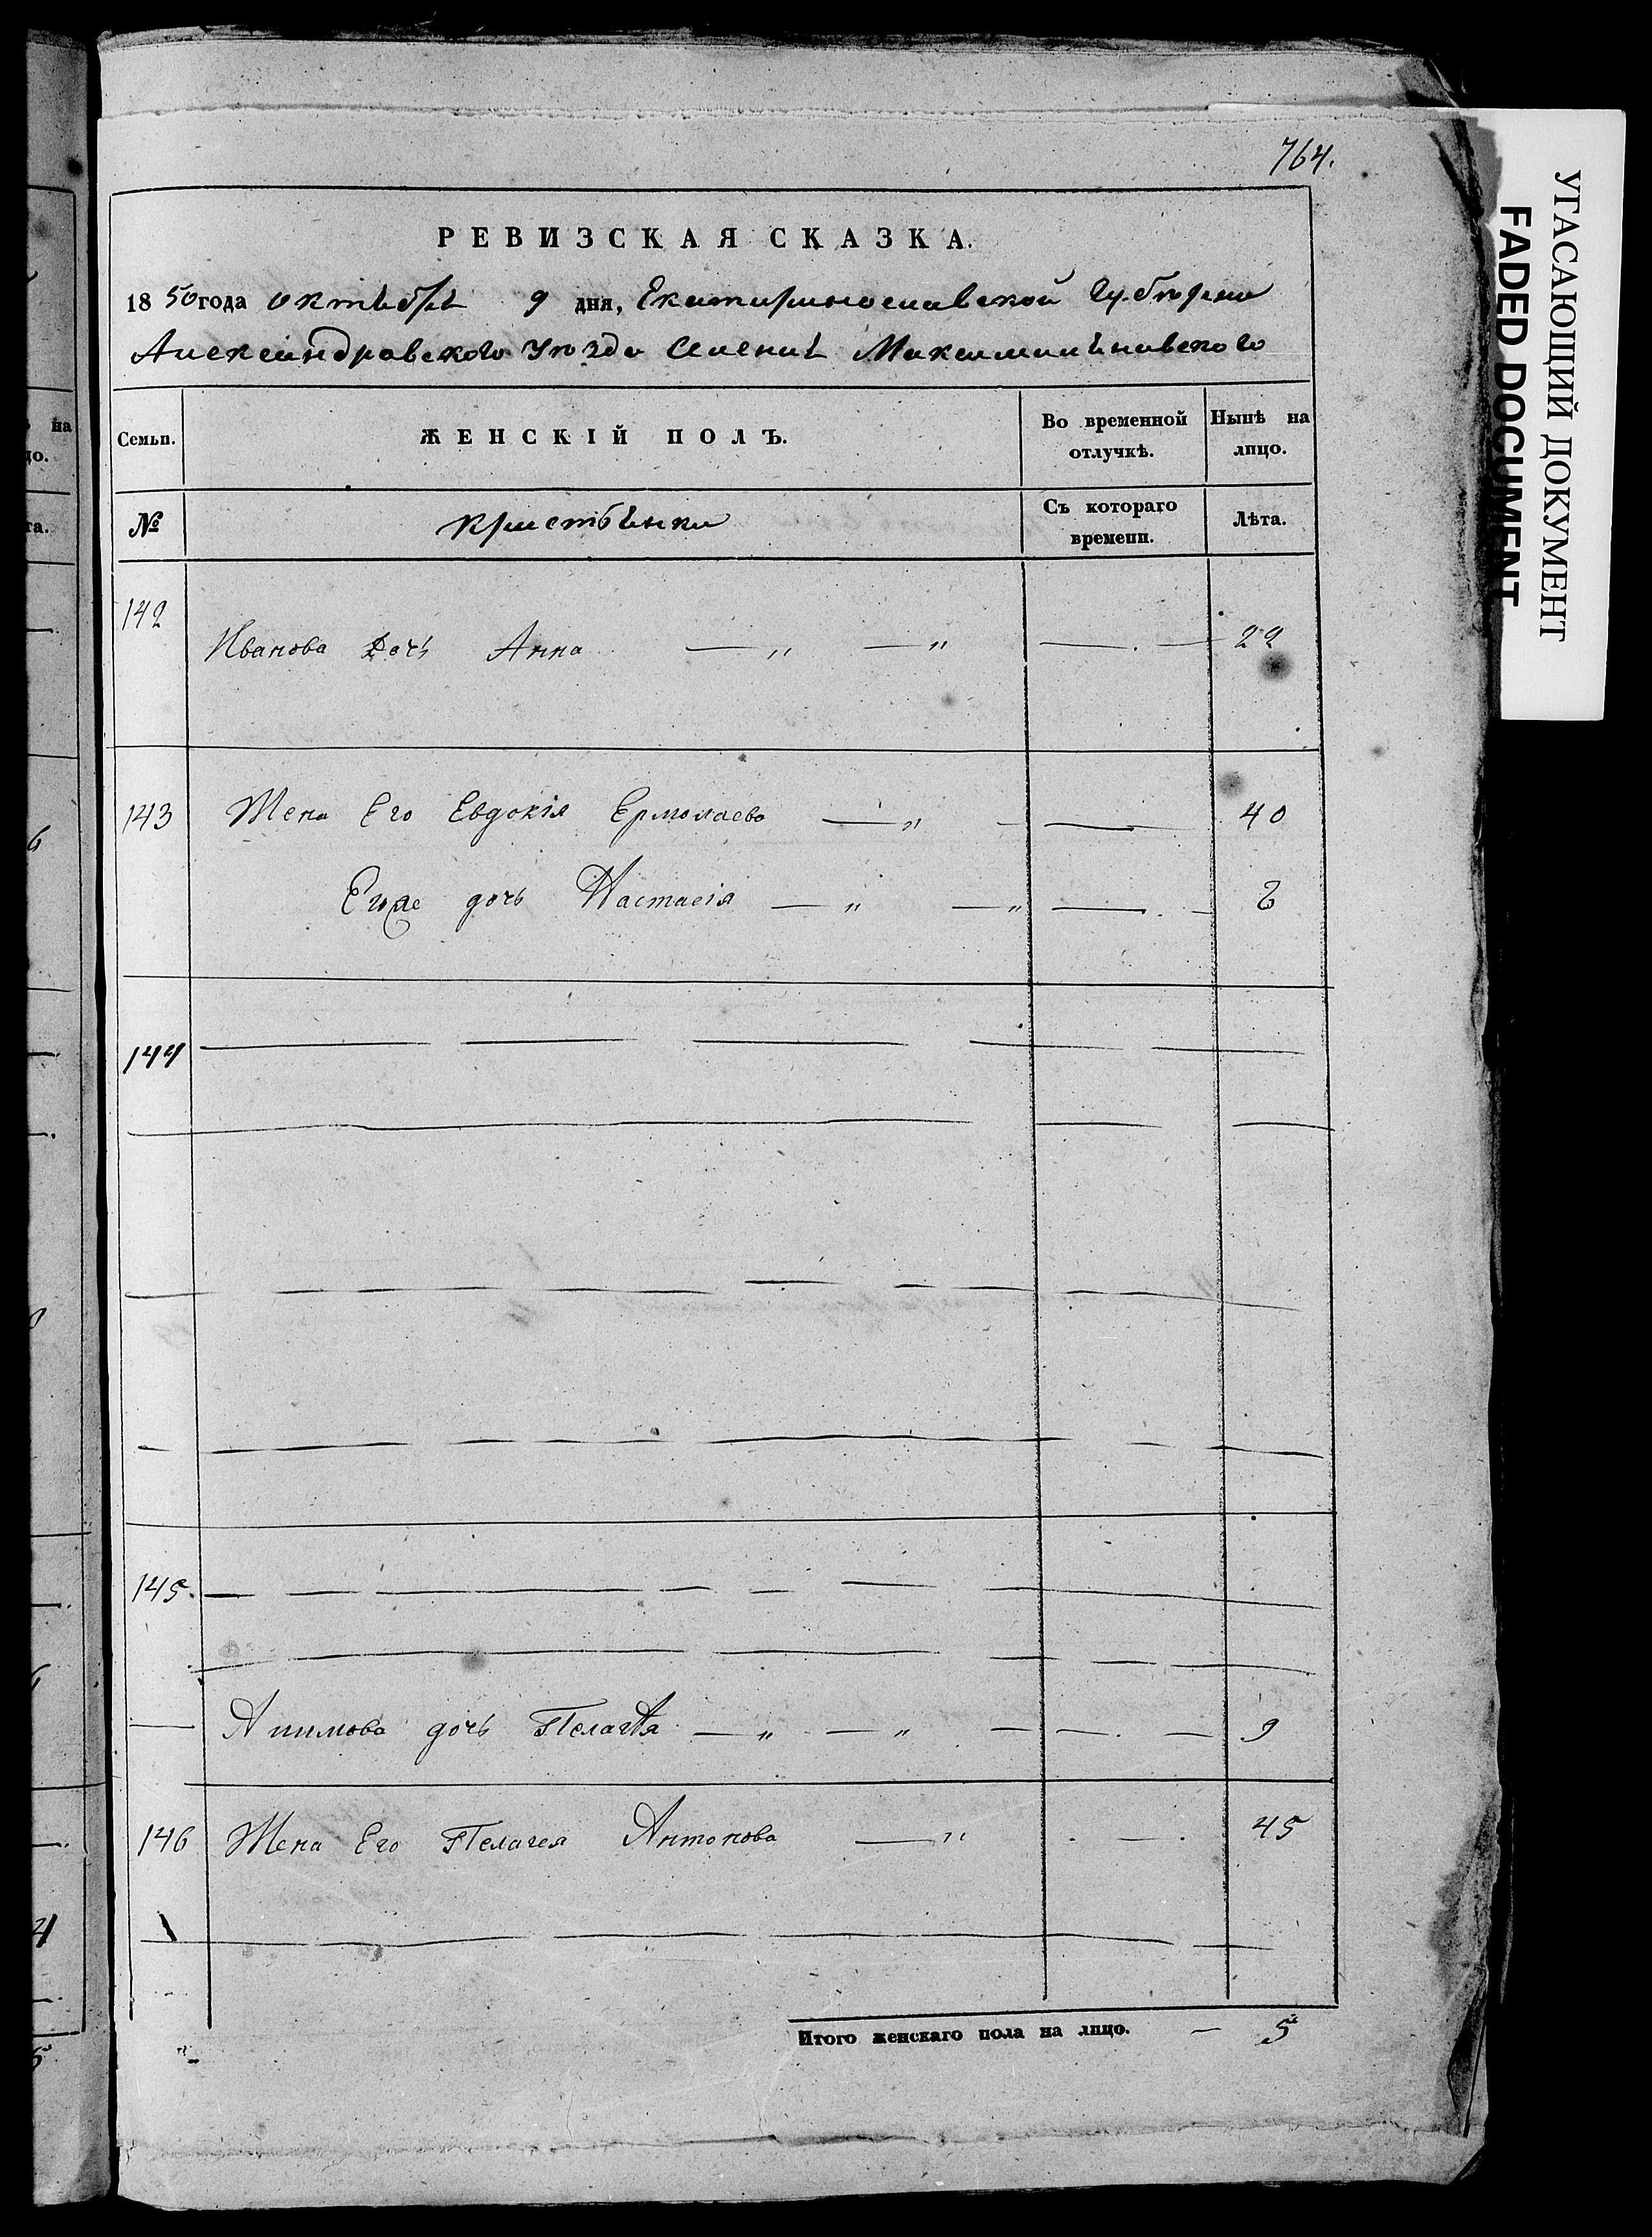 764.
РЕВИЗСКАЯ СКАЗКА.
1850 года октября 9 дня, Екатеринославской Губернии
Александравского Уезда Имения Максимильяновского
Семьи. ЖЕНСКІЙ ПОЛЪ. Во временной отлучкѣ. Нынѣ на лицо.
№ Крестьянки Съ котораго времени. Лѣта.
142
Иванова Дочь Анна — „ — „ — . — 22
143 Жена Его Евдокія Ермолаева — „ — — 40
Еще дочь Настасія — „ — „ — . —
144
145.
дочь Пелагея — „ — „ — — . — 9
146 Жена Его Пелагея Антонова — „ . — . 45
Итого женскаго пола на лицо. — 5
УГАСАЮЩИЙ ДОКУМЕНТ
FADED DOCUMENT
на